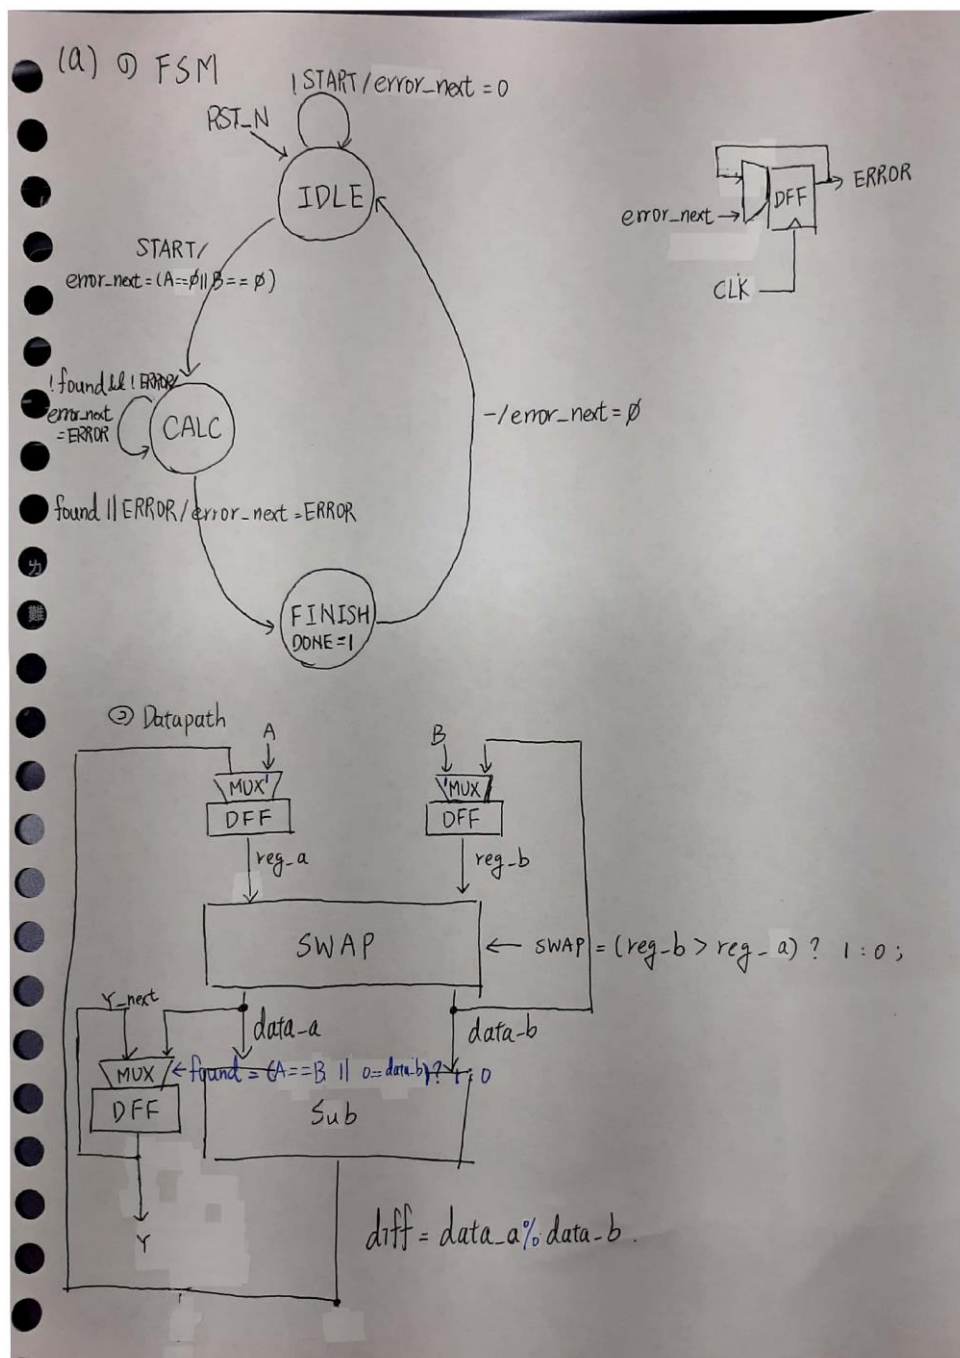 (a) ① FSM
! START/error_next = 0
RST_N
IDLE
ERROR
DFF
error_next
CLK
START/
error_next=(A==∅||B==∅)
!found&&!ERROR/
error_next
=ERROR
CALC
-/error_next=∅
found || ERROR/error_next=ERROR
力
難
FINISH
DONE=1
② Datapath
A
B
MUX
MUX
DFF
DFF
reg_a
reg_b
SWAP
SWAP = (reg_b > reg_a) ? 1:0;
Y_next
data_a
data_b
MUX
found = (A==B || 0==data_b)? 1:0
DFF
Sub
Y
diff = data_a % data_b.